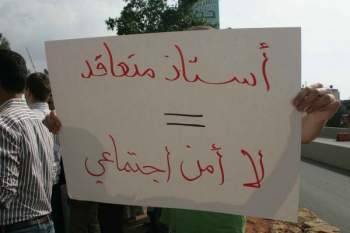 أستاذ متعاقد
=
لا أمن اجتماعي